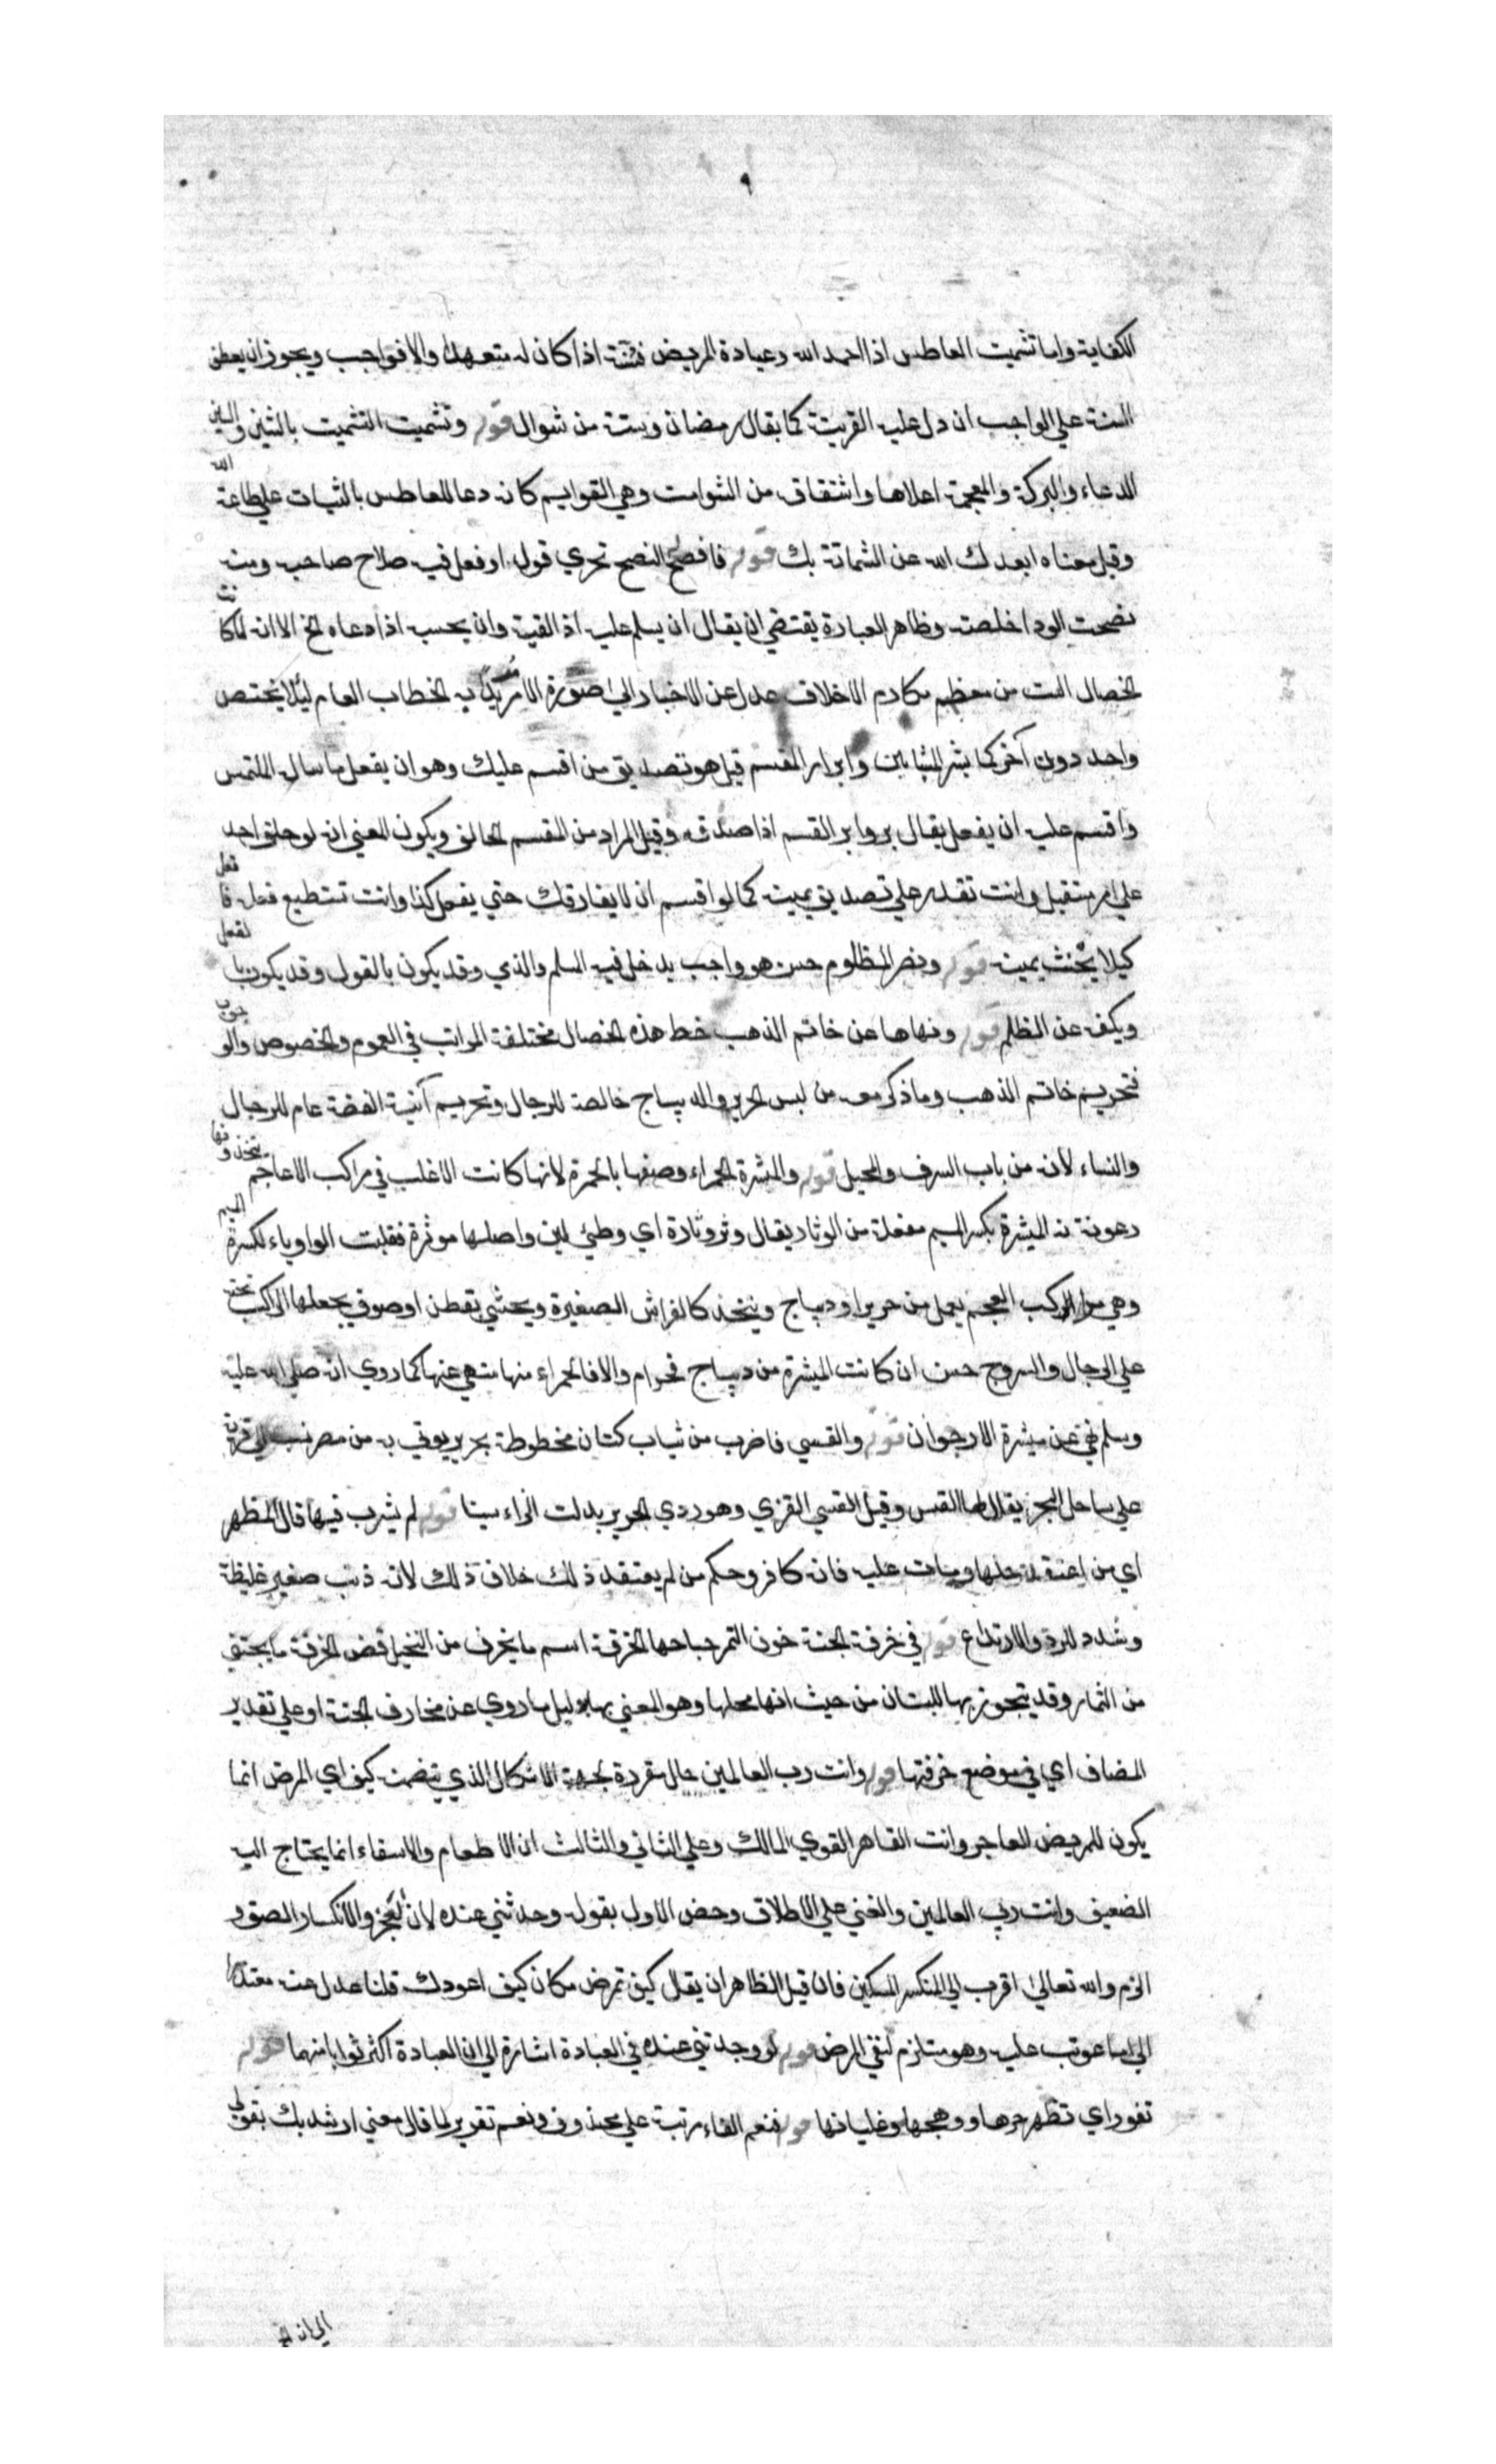 الكفاية واما تشميت العاطس اذا احمد الله وعيادة المريض فسنة اذا كان له متعهد والا فواجب ويجوز ان يعطف
السنة علي الواجب ان دل عليه القرينة كما يقال رمضان وستة من شوال قوله وتشميت التشميت بالشين والسين
الدعاء والبركة والمعجمة اعلاها واشتقاقه من الشوامت وهي القوايم كانه دعا للعاطس بالثبات علي طاعة الله
وقيل معناه ابعدك الله عن الشماتة بك قوله فانصح النصح تحري قول او فعل فيه صلاح صاحبه ومنه
نصحت الود اخلصته وظاهر العبارة يقتضي ان يقال ان يسلم عليه اذا لقيه وان يجيبه اذا دعاه الخ الا انه لما كانت
الخصال الست من معظم مكارم الاخلاق عدل عن الاخبار الي صورة الامر به الخطاب العام ليلا يختص
واحد دون آخر كما بشر المشايين وابرار المقسم قيل هو تصديق من اقسم عليك وهو ان يفعل ما ساله الملتمس
واقسم عليه ان يفعل يقال بر وابر القسم اذا صدقه وقيل المراد من المقسم الحالف ويكون المعني انه لو حلف احد
علي امر مستقبل وانت تقدر علي تصديق يمينه كما لو اقسم ان لا يفارقك حتي يفعل كذا وانت تستطيع فعله فافعل
كيلا يحنث يمينه قوله ونصر المظلوم حسن هو واجب يدخل فيه المسلم والذمي وقد يكون بالقول وقد يكون بالفعل
ويكف عن الظلم قوله ونهاها عن خاتم الذهب خط هذه الخصال مختلفة المراتب في العموم والخصوص والوجوب
فتحريم خاتم الذهب وما ذكر معه من لبس الحرير والديباج خالصة للرجال وتحريم آنية الفضة عام للرجال
والنساء لانه من باب السرف والمخيل قوله والمثيرة الحمراء وصفها بالحمرة لانها كانت الاغلب في مراكب الاعاجم يتخذونها
رعونة نه الميثرة بكسر الميم مفعلة من الوثار يقال وثر وثارة اي وطئ لين واصلها موثرة فقلبت الواو ياء لكسرة الميم
وهي من مراكب العجم يعمل من حرير او ديباج ويتخذ كالفراش الصغيرة ويحشي بقطن او صوف يجعلها الراكب تحته
علي الرحال والسروج حسن ان كانت الميثرة من ديباج فحرام والا فالحمراء منها منهي عنها كما روي انه صلي الله عليه
وسلم نهي عن ميثرة الارجوان قوله والقسي فا ضرب من ثياب كتان مخطوطة بحرير يوتي به من مصر نسب الي قرية
علي ساحل البحر يقال لها القس وقيل القسي القزي وهو ردي الحرير بدلت الزاء سينا قوله لم يشرب فيها قال المظهر
اي من اعتقد حلها ومات عليه فانه كافر وحكم من لم يعتقد ذلك خلاف ذلك لانه ذنب صغير غليظة
وشدد للرد والارتداع قوله في خرفة الجنة خون التمر جباحها الخرفة اسم ما يخرف من النخيل قض الخرفة ما يجتني
من الثمار وقد يتجوز بها للبستان من حيث انها محلها وهو المعني بها بدليل ما روي عن مخارف الجنة او علي تقدير
المضاف اي في موضع خرفتها قوله وانت رب العالمين حال مقررة لجهة الاشكال الذي يتضمنه كيف اي المرض انما
يكون للمريض العاجز وانت القاهر القوي المالك وعلي الثاني والثالث ان الاطعام والاسقاء انما يحتاج اليه
الضعيف وانت رب العالمين والغني علي الاطلاق وخص الاول بقوله وجدتني عنده لان العجز والانكسار الصق و
الزم والله تعالي اقرب الي المنكسر المسكين فان قيل الظاهر ان يقال كيف تمرض مكان كيف اعودك قلنا عدل عنه معتذرا
الي ما عوتب عليه وهو مستلزم لنفي المرض قوله لو وجدتني عنده في العيادة اشارة الي ان العيادة اكثر ثوابا منهما قوله
تفور اي تظهر حرها ووهجها وغليانها قوله فنعم الفاء مرتبة علي محذوف ونعم تقرير لما قال معني ارشدتك بقولي